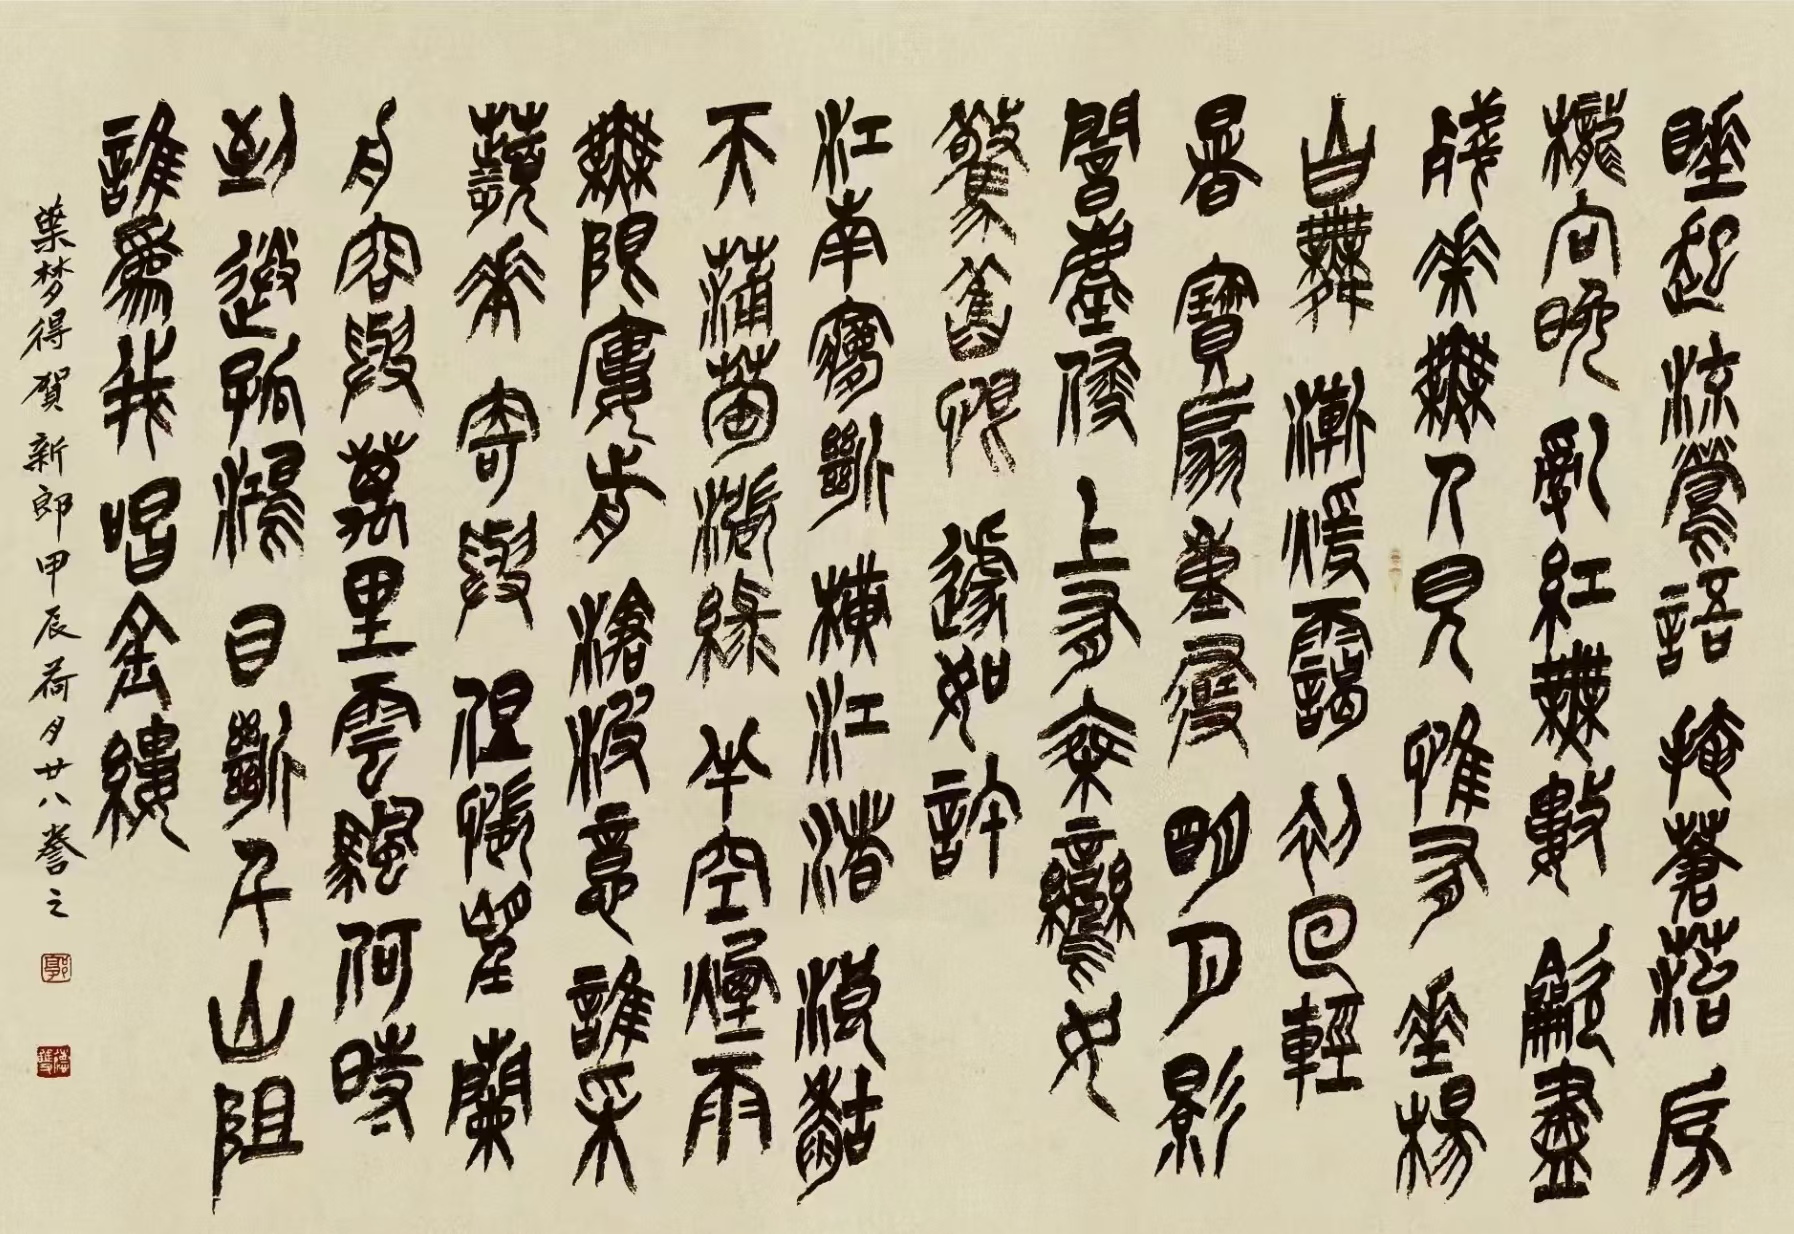 睡起流鶯語掩蒼苔房
櫳向晚亂紅無數歙盡
殘花無人見惟有垂楊
自舞漸煖靄初回輕
暑寶扇重尋明月影
闇塵侵上有乘鸞女
驚舊恨遽如許
江南夢斷橫江渚浪黏
天蒲萄漲綠半空煙雨
無限樓前滄波意誰采
蘋花寄與但悵望蘭
舟容與萬里雲颿何時
到送孤鴻目斷千山阻
誰為我唱金縷
葉梦得賀新郎甲辰荷夕廿八誊之